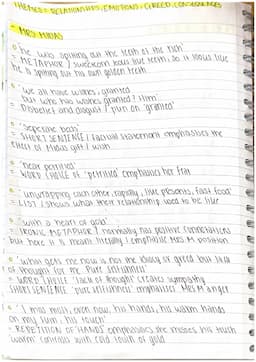 THEMES = RELATIONSHIPS, EMOTIONS, GREED, CONSEQUENCES
MRS MIDAS
"he was spitting out the teeth of the rich"
= METAPHOR / sweetcorn looks like teeth, so it looks like
he is spitting out his own golden teeth
"we all have wishes; granted.
but who has wishes granted? Him"
= Disbelief and disgust / pun on "granted"
"seperate beds"
= SHORT SENTENCE / factual statement emphasises the
effect of Midas gift / wish
"near petrified"
= WORD CHOICE of "petrified" emphasises her fear
"unwrapping each other, rapidly, like presents, fast food"
= LIST / shows what their relationship used to be like
"with a heart of gold"
= IRONIC METAPHOR / normally has positive connotations
but here it is meant literally / emphasise Mrs M position
"what gets me now is not the idiocy of greed but lack
of thought for me. Pure selfishness"
= WORD CHOICE "lack of thought" creates sympathy
SHORT SENTENCE "pure selfishness" emphasises Mrs M anger
"I miss most, even now, his hands, his warm hands
on my skin, his touch"
= REPETITION OF "HANDS" emphasises she misses his touch
"warm" contrasts with cold touch of gold